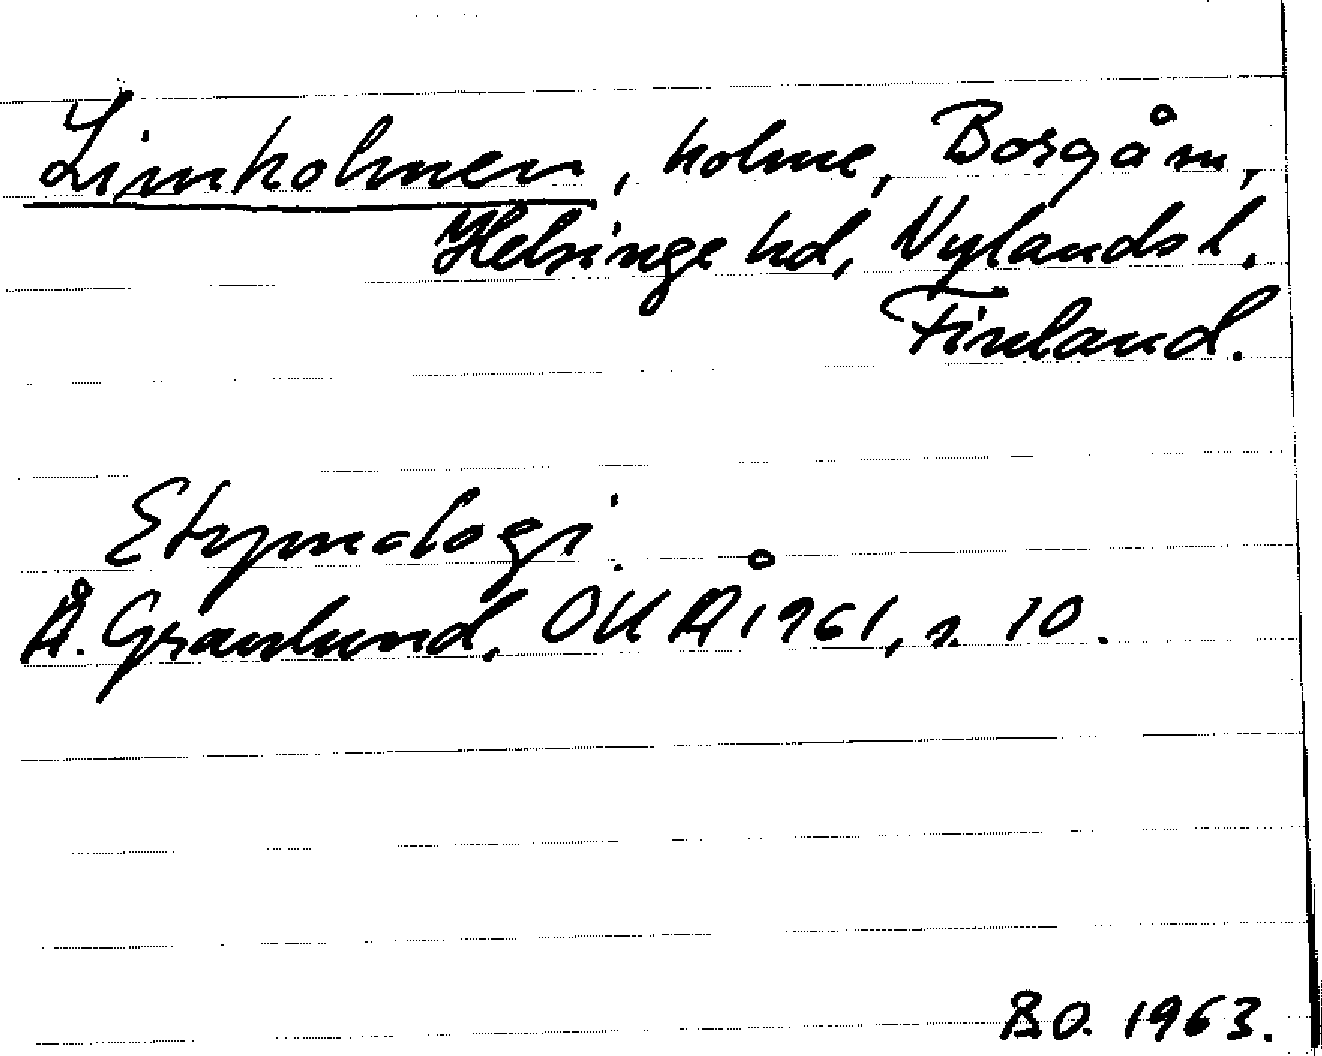 Limholmen, holme, Borgå sn,
Helsinge hd, Nylands l.
Finland.
Etymologi.
Å. Granlund, OUÅ 1961, s. 10.
B.O. 1963.